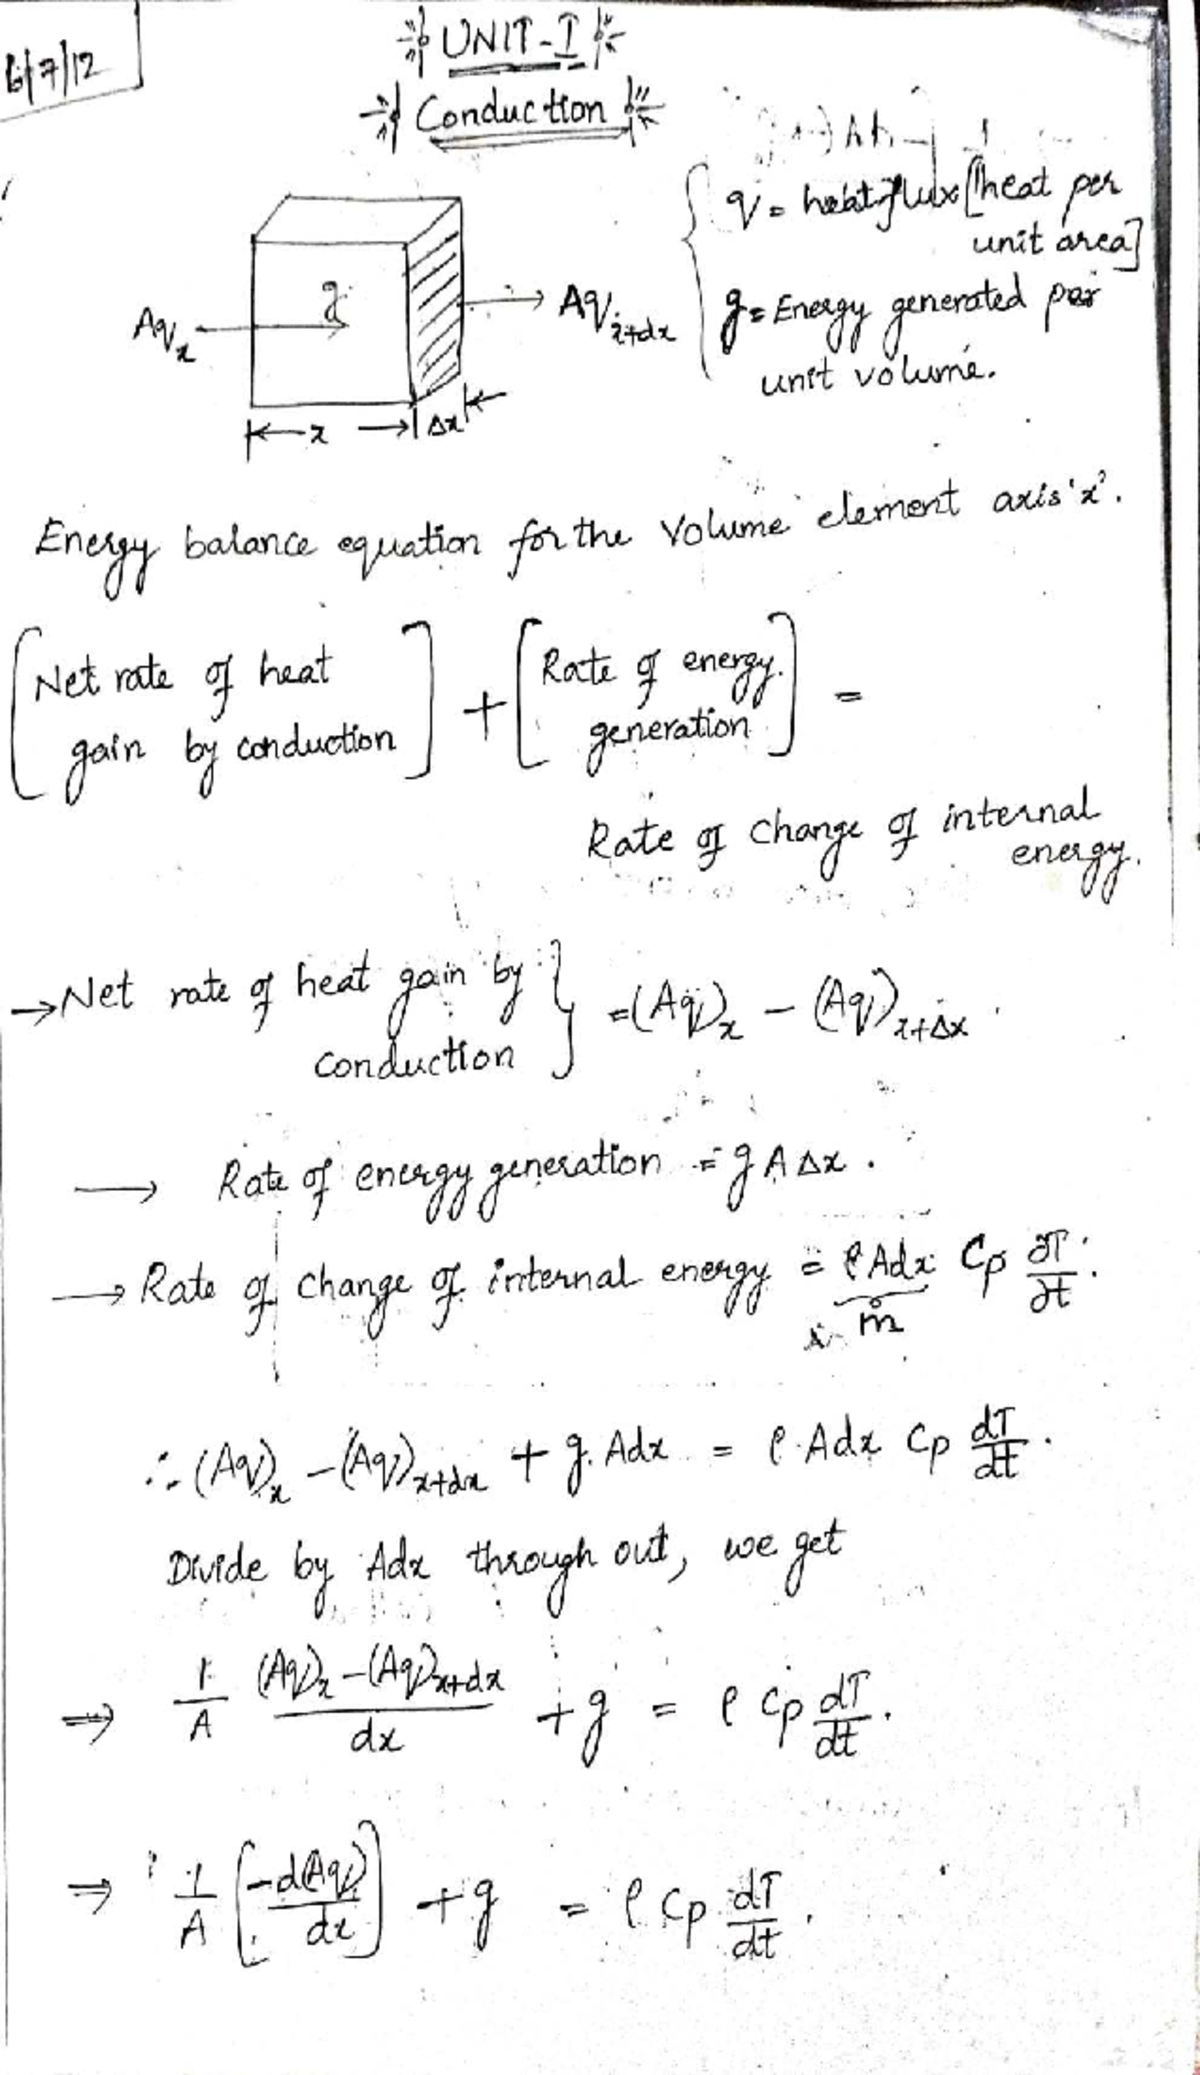 6/7/12
UNIT-I
Conduction
q = heat flux [heat per
unit area]
g = Energy generated per
unit volume.
g
Aqₓ
Aqₓ₊dx
x
Δx
Energy balance equation for the volume element axis 'x'.
[Net rate of heat gain by conduction] + [Rate of energy generation] =
Rate of change of internal
energy.
→ Net rate of heat gain by
conduction } = (Aq)ₓ − (Aq)ₓ₊Δx
→ Rate of energy generation = g A Δx.
→ Rate of change of internal energy = ρ Adx Cp ∂T/∂t.
m
∴ (Aq)ₓ − (Aq)ₓ₊dx + g. Adx = ρ Adx Cp dT/dt.
Divide by Adx through out, we get
⇒ 1/A (Aq)ₓ − (Aq)ₓ₊dx / dx + g = ρ Cp dT/dt.
⇒ 1/A [−d(Aq)/dx] + g = ρ Cp dT/dt.